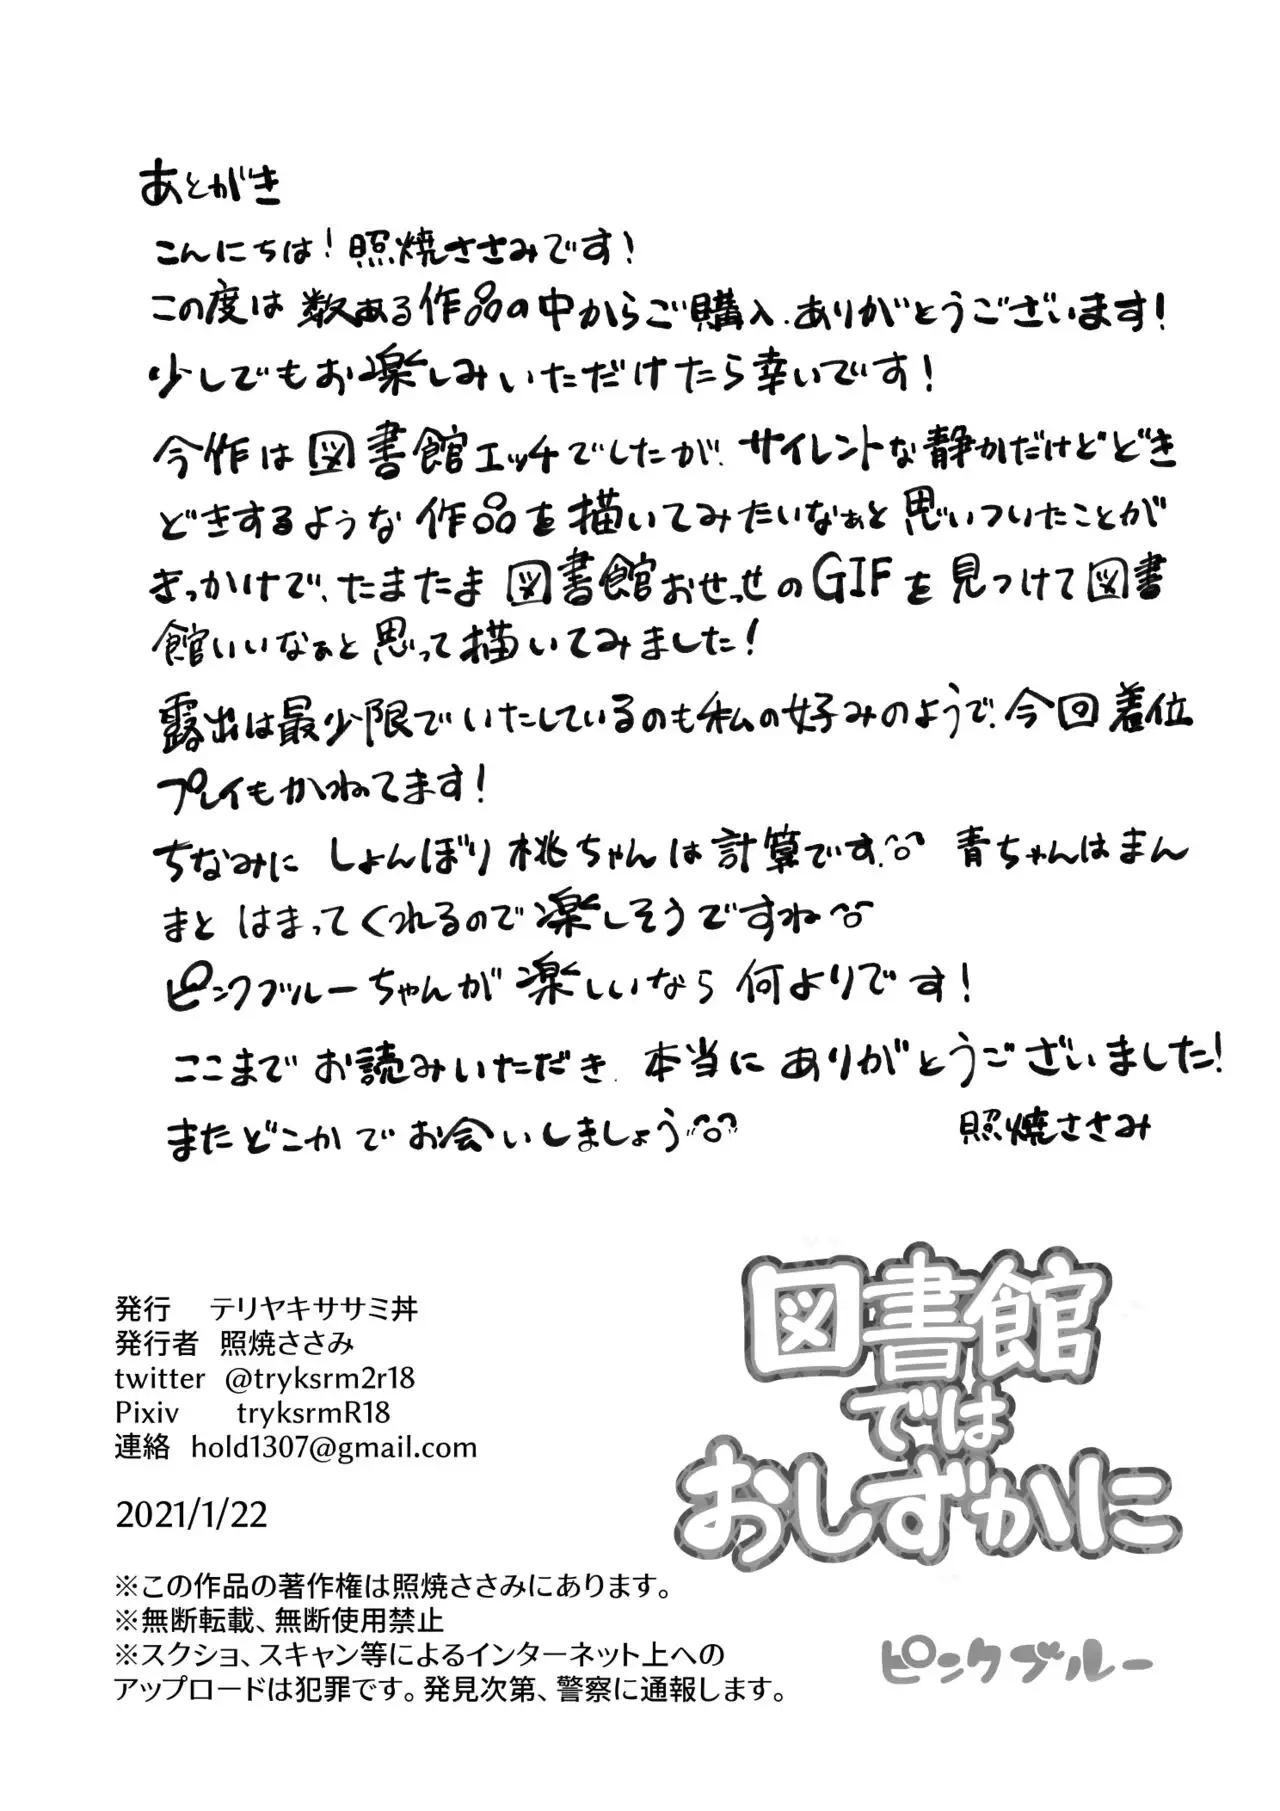 あとがき
こんにちは!照焼ささみです!
この度は数ある作品の中からご購入、ありがとうございます!
少しでもお楽しみいただけたら幸いです!
今作は図書館エッチでしたが、サイレントな静かだけどどき
どきするような作品を描いてみたいなぁと思いついたことが
きっかけで、たまたま図書館おせっせのGIFを見つけて図書
館いいなぁと思って描いてみました!
露出は最少限でいたしているのも私の好みのようで、今回着位
プレイもかねてます!
ちなみにしょんぼり桃ちゃんは計算です。 青ちゃんはまん
まとはまってくれるので楽しそうですね
ピンクブルーちゃんが楽しいなら何よりです!
ここまでお読みいただき、本当にありがとうございました!
またどこかでお会いしましょう
照焼ささみ
発行 テリヤキササミ丼
発行者 照焼ささみ
twitter @tryksrm2r18
Pixiv tryksrmR18
連絡 hold1307@gmail.com
2021/1/22
※この作品の著作権は照焼ささみにあります。
※無断転載、無断使用禁止
※スクショ、スキャン等によるインターネット上への
アップロードは犯罪です。発見次第、警察に通報します。
図書館
では
おしずかに
ピンクブルー